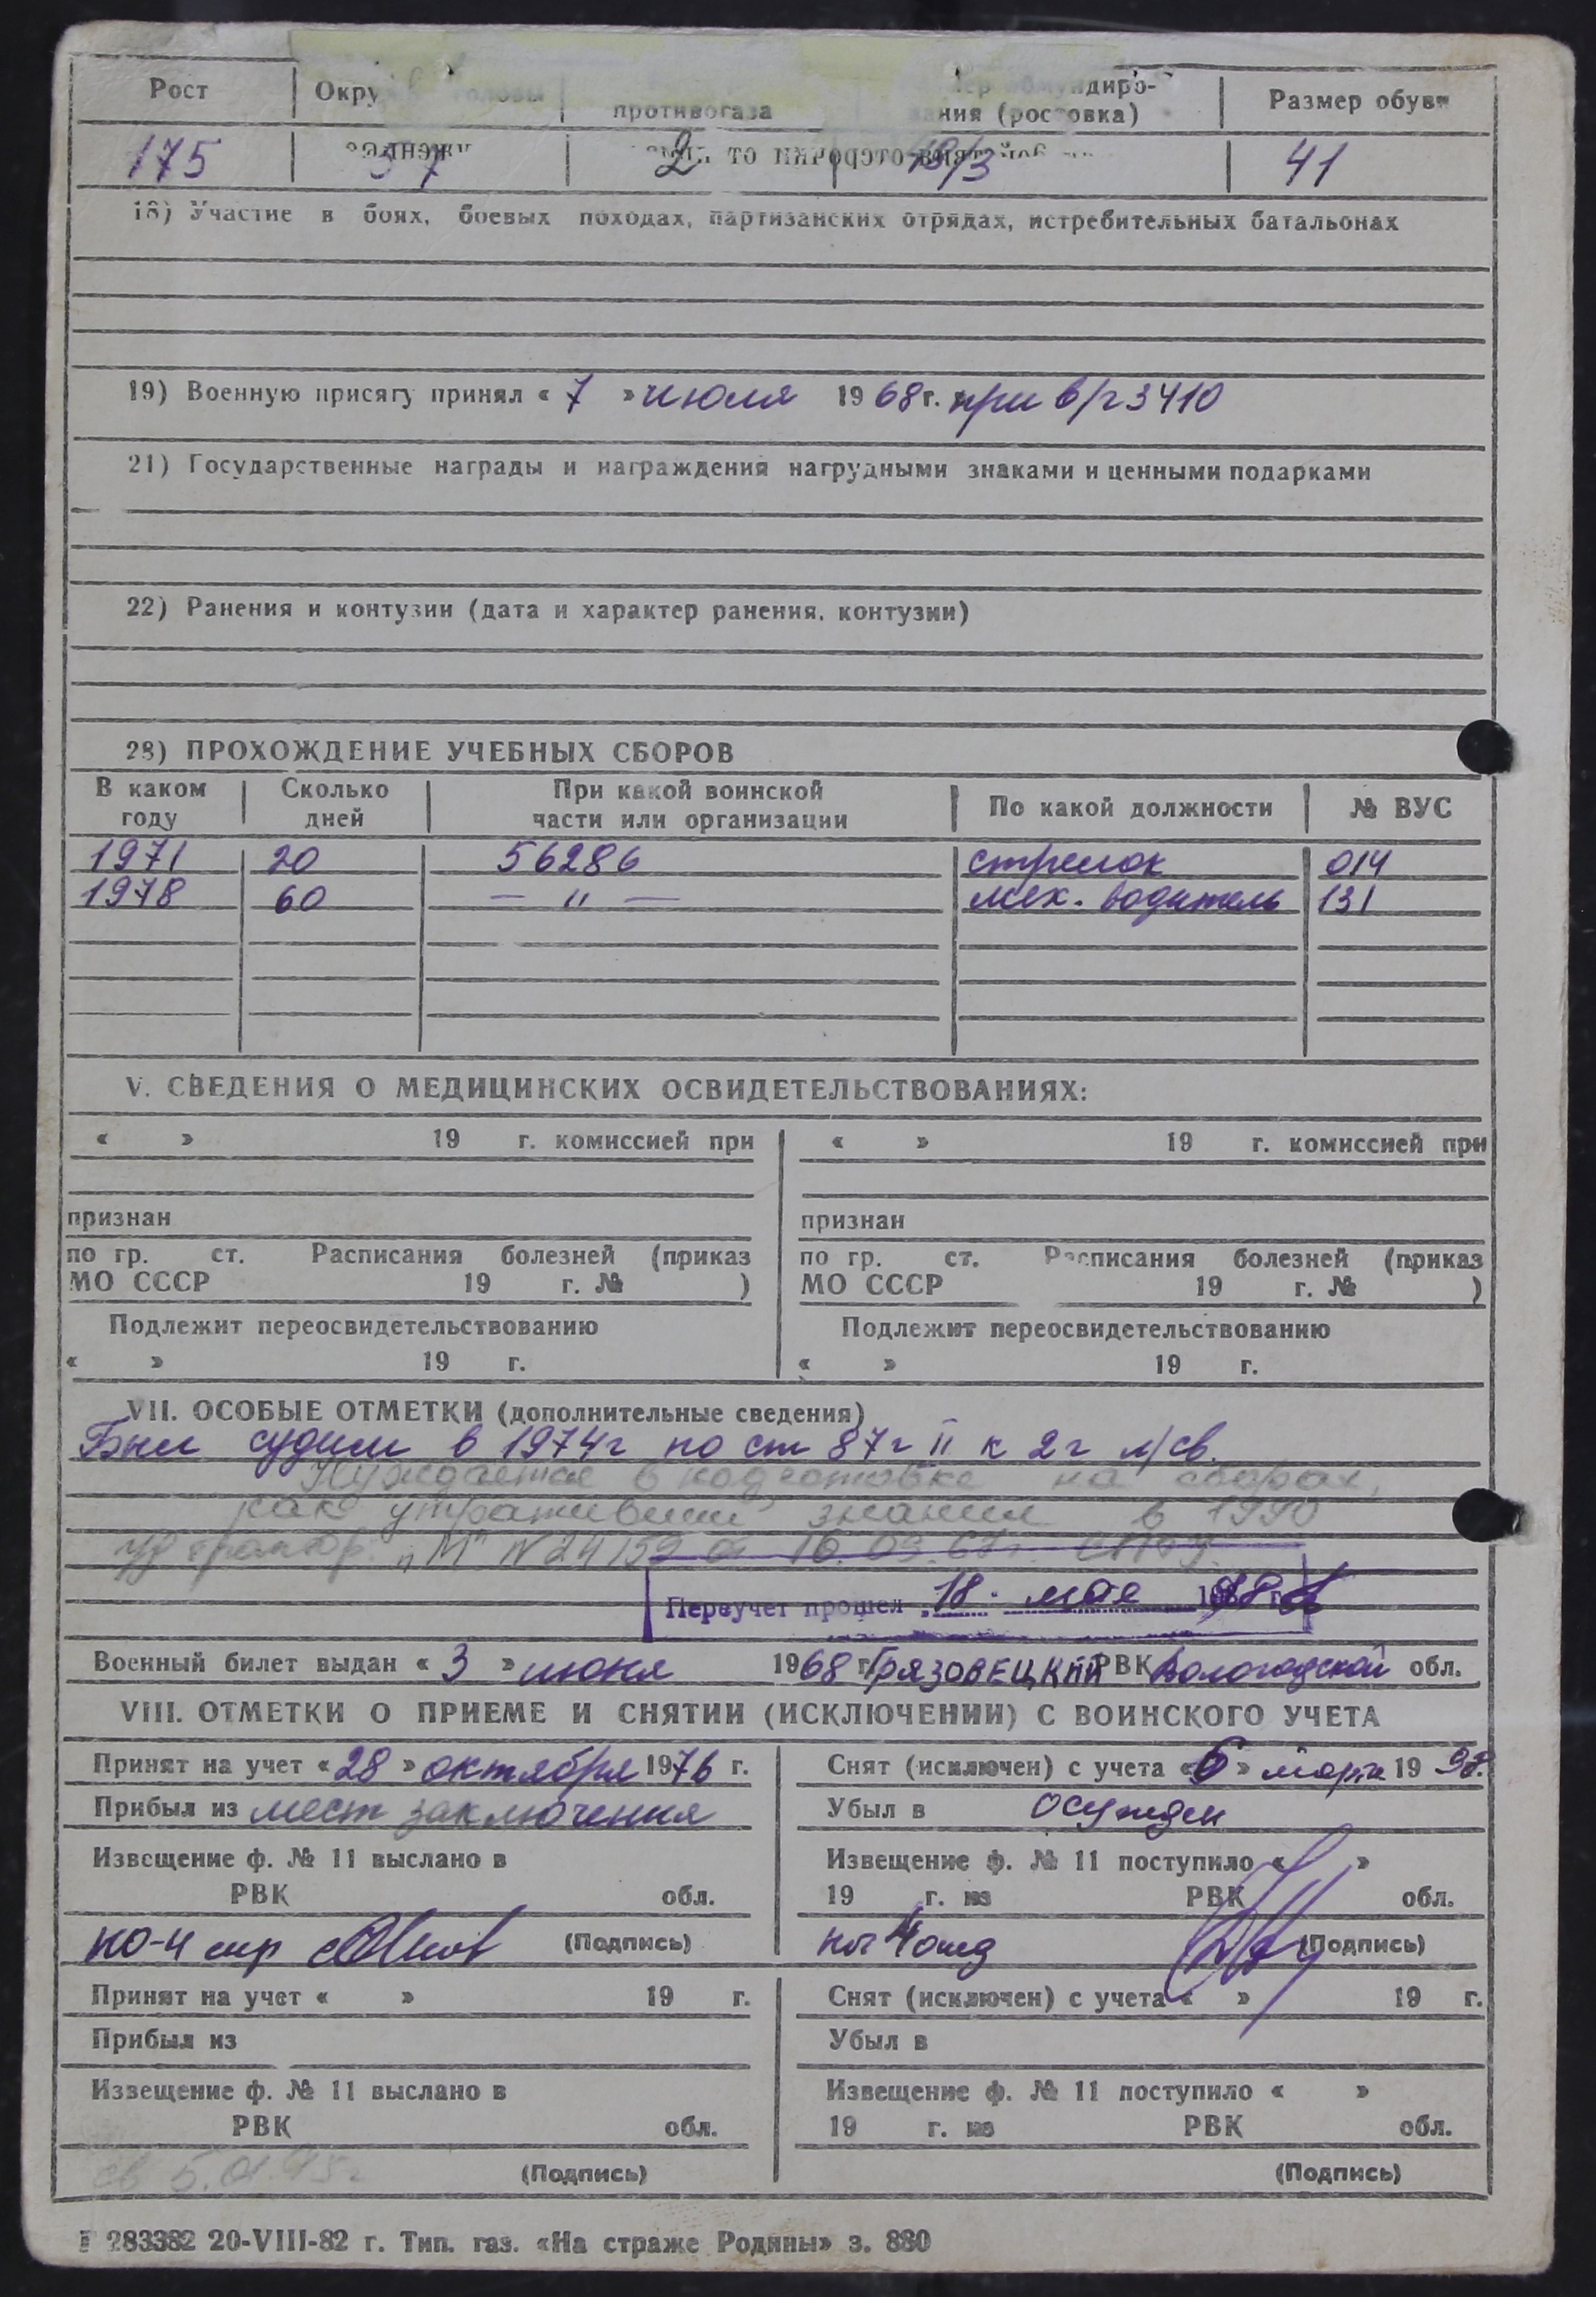 Рост Окру головы противогаза обмундиро-
вания (ростовка) Размер обуви
175 57 2 41
18) Участие в боях, боевых походах, партизанских отрядах, истребительных батальонах
19) Военную присягу принял « 7 » июля 1968 г. при в/ч 3410
21) Государственные награды и награждения нагрудными знаками и ценными подарками
22) Ранения и контузии (дата и характер ранения, контузии)
23) ПРОХОЖДЕНИЕ УЧЕБНЫХ СБОРОВ
В каком Сколько При какой воинской По какой должности № ВУС
году дней части или организации
1971 20 56286 стрелок 014
1978 60 — " — мех. водитель 131
V. СВЕДЕНИЯ О МЕДИЦИНСКИХ ОСВИДЕТЕЛЬСТВОВАНИЯХ:
« » 19 г. комиссией при « » 19 г. комиссией при
признан признан
по гр. ст. Расписания болезней (приказ по гр. ст. Расписания болезней (приказ
МО СССР 19 г. № ) МО СССР 19 г. № )
Подлежит переосвидетельствованию Подлежит переосвидетельствованию
« » 19 г. « » 19 г.
VII. ОСОБЫЕ ОТМЕТКИ (дополнительные сведения)
Был судим в 1974г по ст 87 ч II к 2 г л/св.
Нуждается в подготовке на сборах,
как утративший знания в 1990
"М" N24159 от 16.03.67г.
Переучет прошел 18. мая
Военный билет выдан « 3 » июня 1968 г. ГРЯЗОВЕЦКИЙ РВК Вологодской обл.
VIII. ОТМЕТКИ О ПРИЕМЕ И СНЯТИИ (ИСКЛЮЧЕНИИ) С ВОИНСКОГО УЧЕТА
Принят на учет «28» октября 1976 г. Снят (исключен) с учета «6» марта 1998.
Прибыл из мест заключения Убыл в осужден
Извещение ф. № 11 выслано в Извещение ф. № 11 поступило « »
РВК обл. 19 г. из РВК обл.
(Подпись) нач 4 отд (Подпись)
Принят на учет « » 19 г. Снят (исключен) с учета « » 19 г.
Прибыл из Убыл в
Извещение ф. № 11 выслано в Извещение ф. № 11 поступило « »
РВК обл. 19 г. из РВК обл.
св 5.01.95г (Подпись) (Подпись)
Г 283382 20-VIII-82 г. Тип. газ. «На страже Родины» з. 880